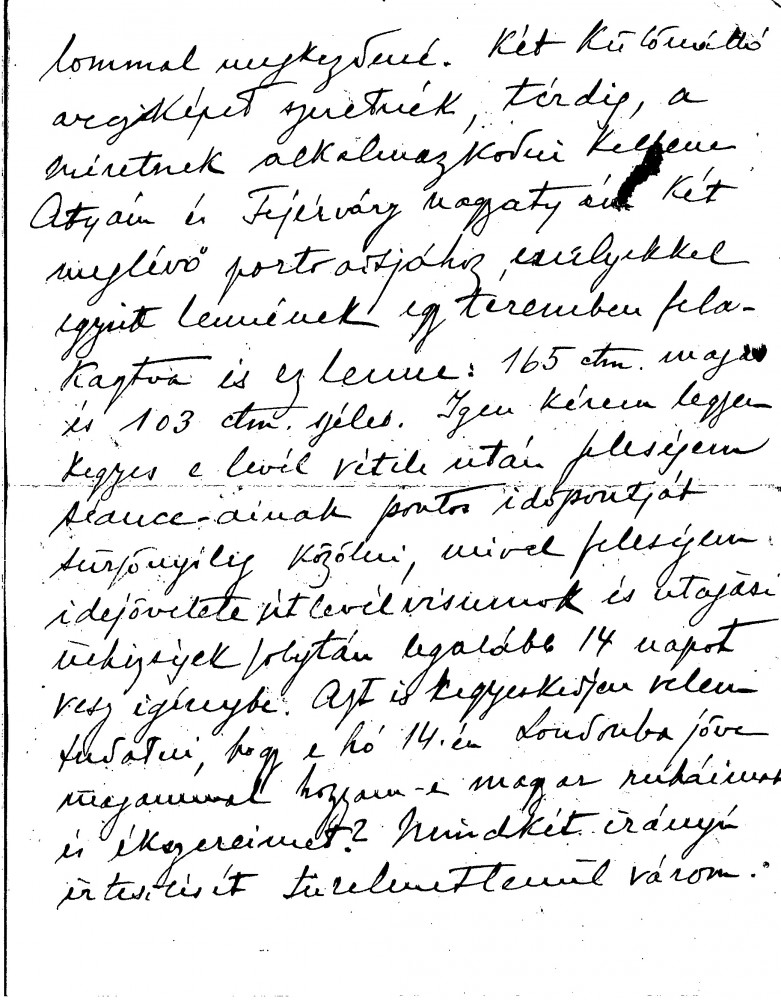 lommal megkezdené. Két Különálló
arczképet szeretnék, térdig, a
méretnek alkalmazkodni kellene
Atyám és Fejérváry nagyatyám két
meglévő portraitjához, melyekkel
együtt lennének egy teremben fela-
kasztva is ez lenne: 165 ctm. magas
és 103 ctm. széles. Igen kérem legyen
kegyes e levél vétele után feleségem
séance-ainak pontos időpontját
sürgönyileg közölni, mivel feleségem
idejövetele útlevélvisumok és utazási
nehézségek folytán legalább 14 napot
vesz igénybe. Azt is kegyeskedjen velem
tudatni, hogy e hó 14.-én Londonba jőve
magammal hozzam-e magyar ruháimat
és ékszereimet? Mindkét irányú
értesítését türelmetlenül várom.